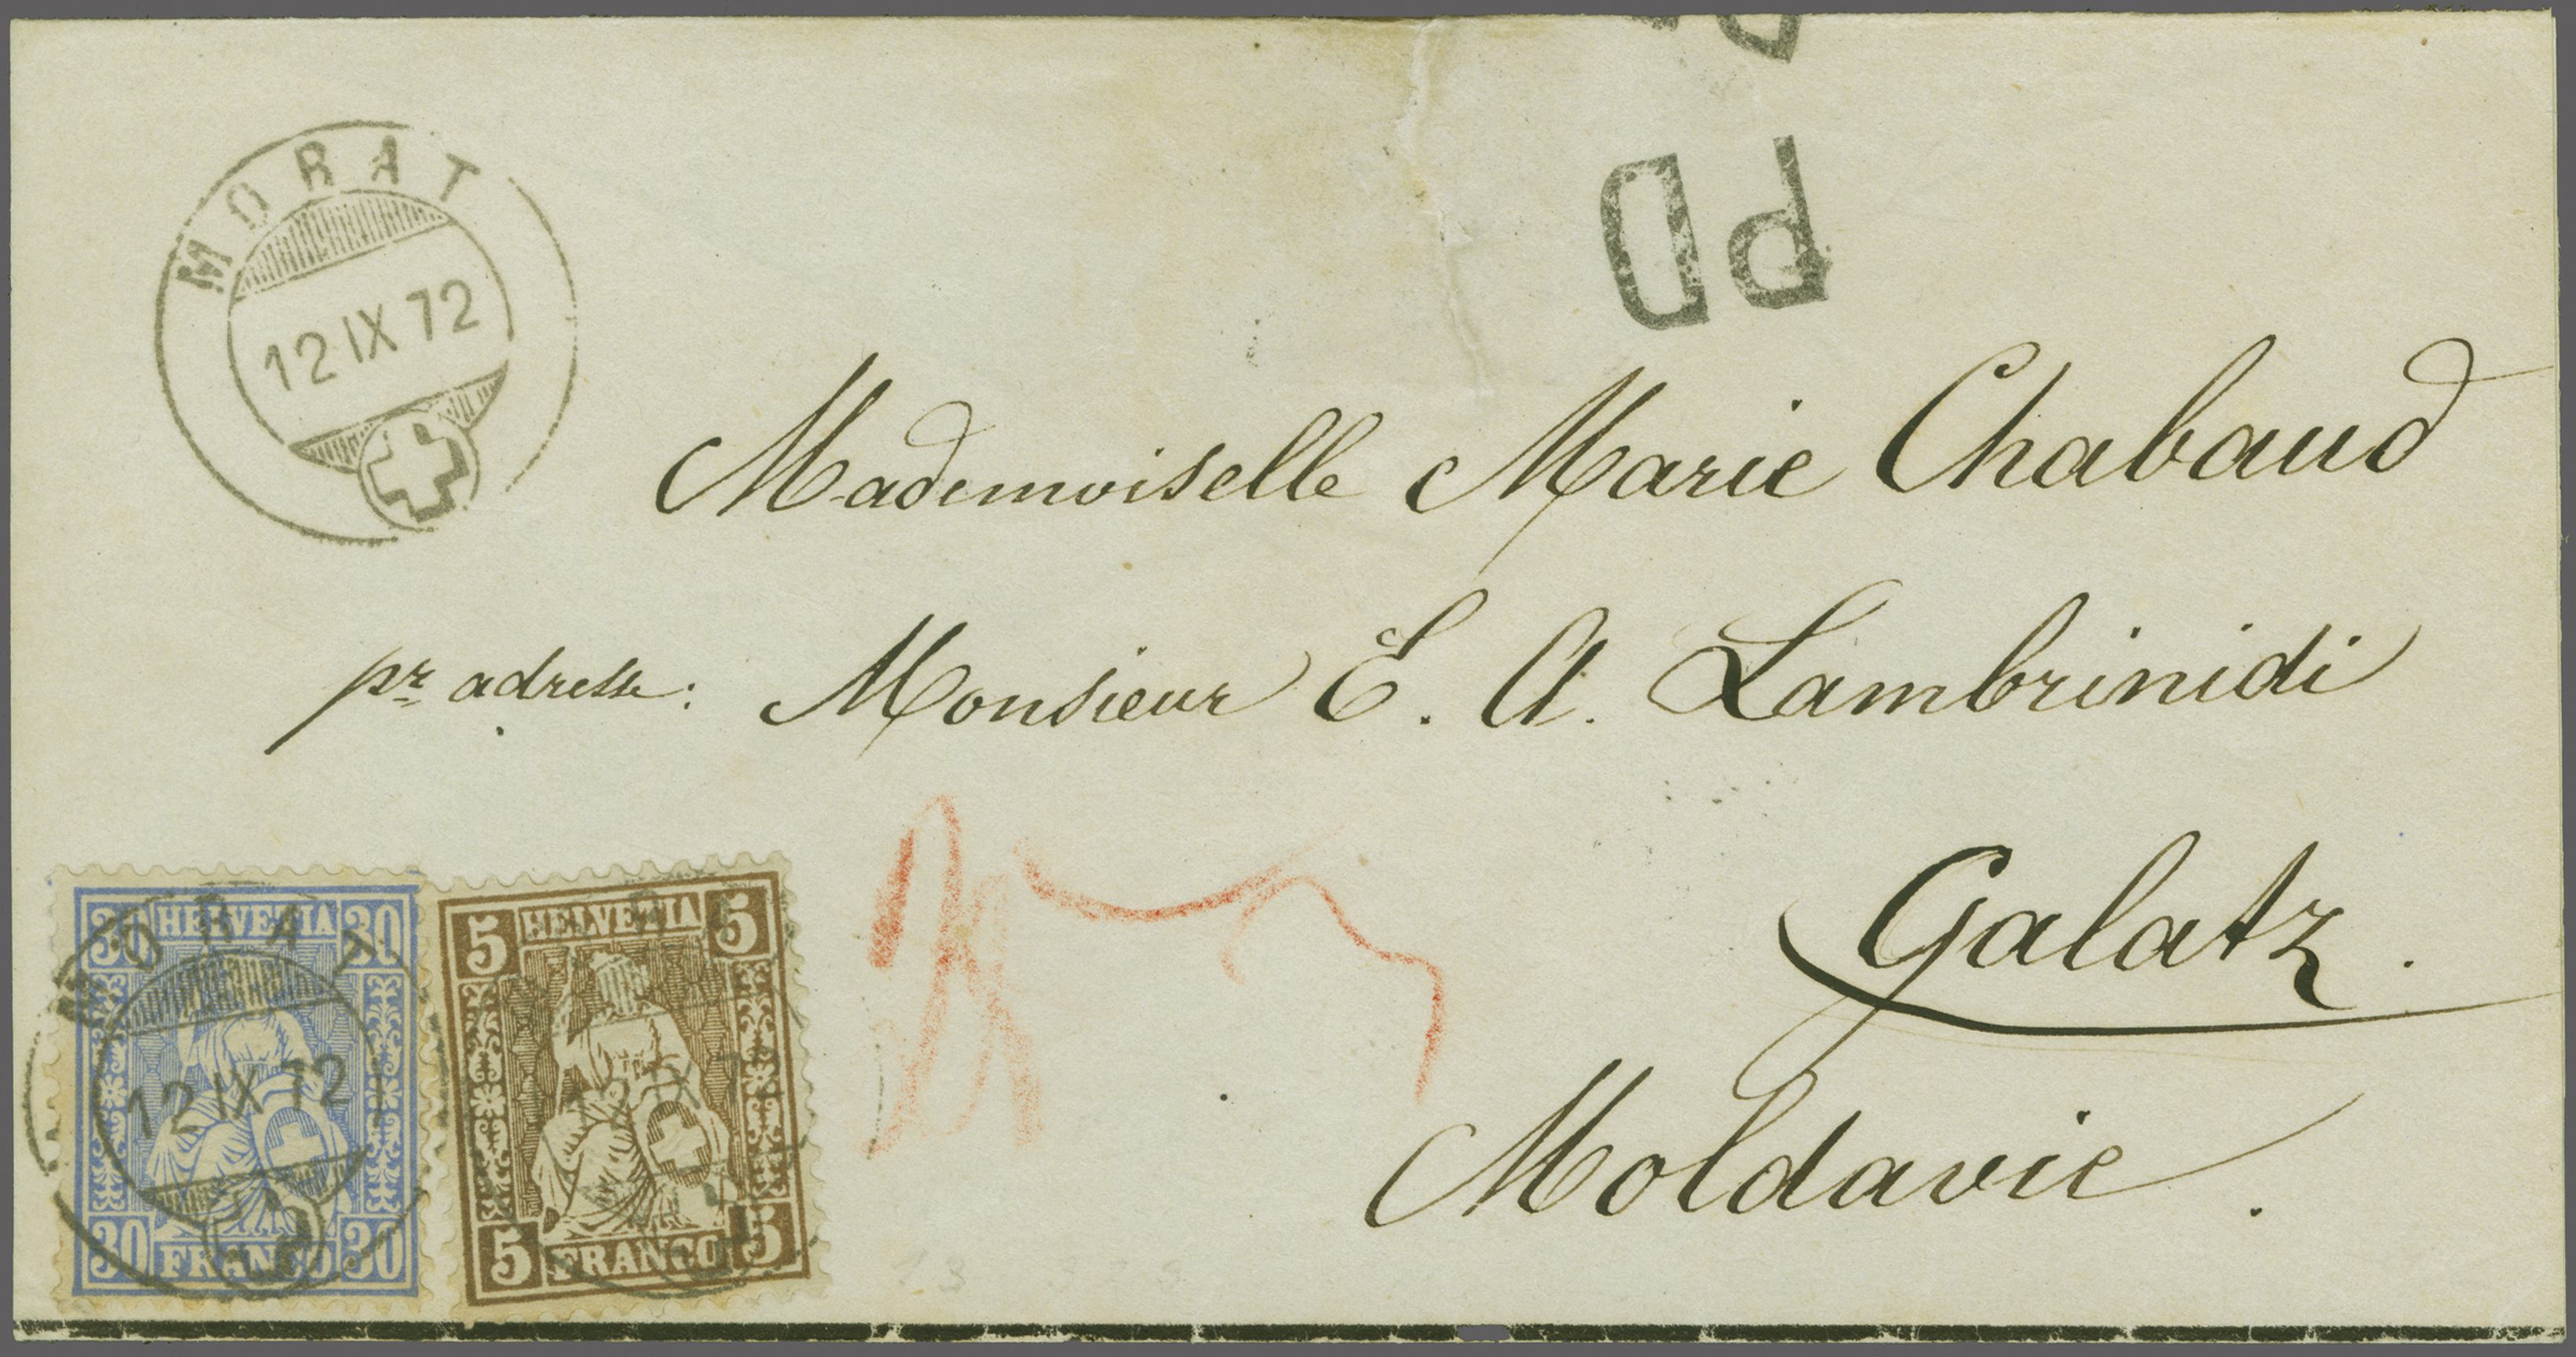 MORAT
12 IX 72
PD
Mademoiselle Marie Chabaud
pr adresse: Monsieur E. A. Lambrinidi
Galatz.
Moldavie.
30 HELVETIA 30
MORAT
12 IX 72
30 FRANCO 30
5 HELVETIA 5
12 IX 72
5 FRANCO 5